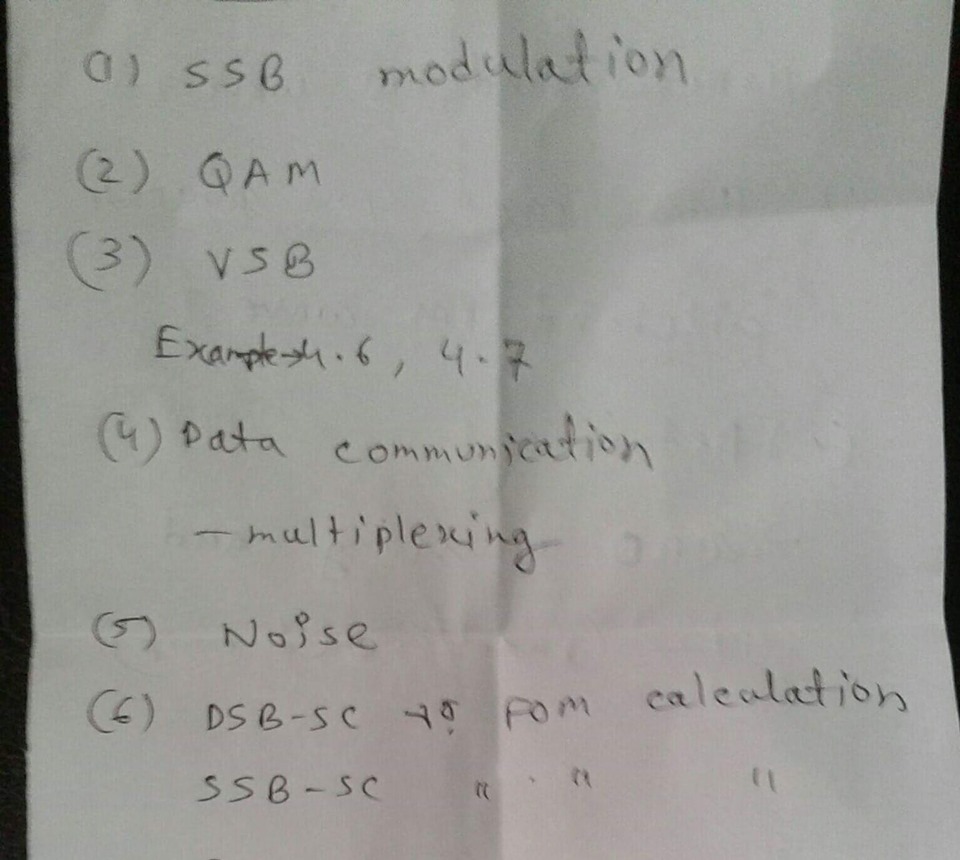 (1) SSB modulation
(2) QAM
(3) VSB
Example → 4.6, 4.7
(4) Data communication
- multiplexing
(5) Noise
(6) DSB-SC FOM calculation
SSB-SC " " "